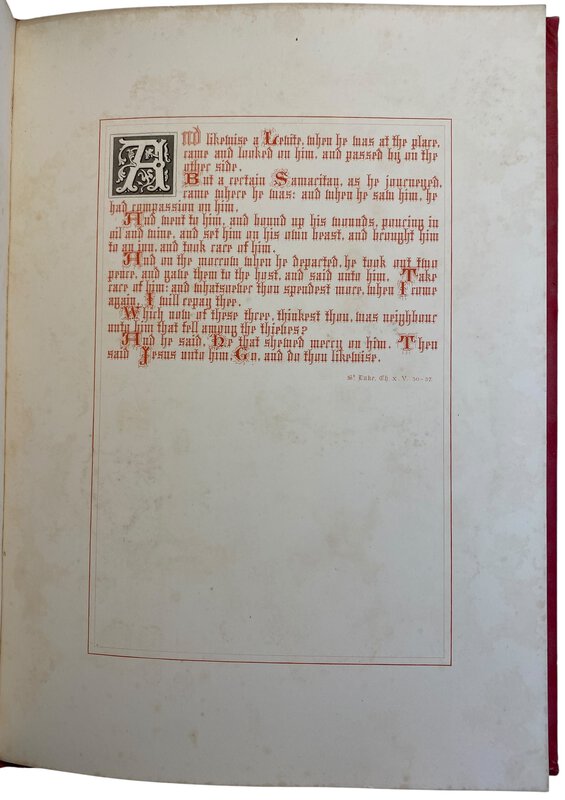 AND likewise a Levite, when he was at the place,
came and looked on him, and passed by on the
other side.
But a certain Samaritan, as he journeyed,
came where he was: and when he saw him, he
had compassion on him.
And went to him, and bound up his wounds, pouring in
oil and wine, and set him on his own beast, and brought him
to an inn, and took care of him.
And on the morrow when he departed, he took out two
pence, and gave them to the host, and said unto him, Take
care of him: and whatsoever thou spendest more, when I come
again, I will repay thee.
Which now of these three, thinkest thou, was neighbour
unto him that fell among the thieves?
And he said, He that shewed mercy on him. Then
said Jesus unto him, Go, and do thou likewise.
St Luke, Ch X. V. 30-37.